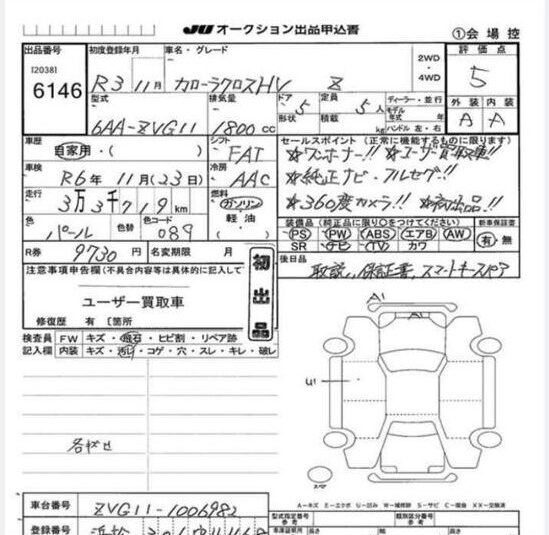 JU オークション出品申込書
①会場控
出品番号
[2038]
6146
初度登録年月
R3 11月
車名・グレード
カローラクロスHV Z
2WD
・
4WD
評価点
5
型式
6AA-ZVG11
排気量
1800 cc
ドア
形状
5
定員
積載
5人
kg
ディーラー・並行
モデル
年式 年
ハンドル 左・右
外装 内装
A A
車歴
自家用・( )
シフト
FAT
セールスポイント (正常に機能するものに限ります)
☆ワンオーナー!! ☆ユーザー買取車!!
車検
R6年11月(23日)
冷房
AAC
☆純正ナビ・フルセグ!!
走行
3万3千719km
燃料
ガソリン
軽油・
( )
☆360度カメラ!! ☆初出品!
色
パール
色替
色コード
089
装備品 (純正品に限り○をつけてください)
新車保証書
PS PW ABS エアB AW
SR ナビ TV カワ
有・無
R券
9730円
名変期限
月
後日品
取説、保証書、スマートキースペア
注意事項申告欄(不具合内容等は具体的に記入して
初出品
ユーザー買取車
修復歴 有 〔箇所
検査員
記入欄
FW キズ・飛石・ヒビ割・リペア跡
内装 キズ・汚れ・コゲ・穴・スレ・キレ・破レ
A1
A1
U1
スマ
A－キズ E－エクボ U－凹み W－補修跡 S－サビ C－腐食 XX－交換済
車台番号
ZVG11-1006982
型式指定番号
参考
類別区分番号
参考
登録番号
浜松 301
車体証明所
参考
長さ
幅
高さ